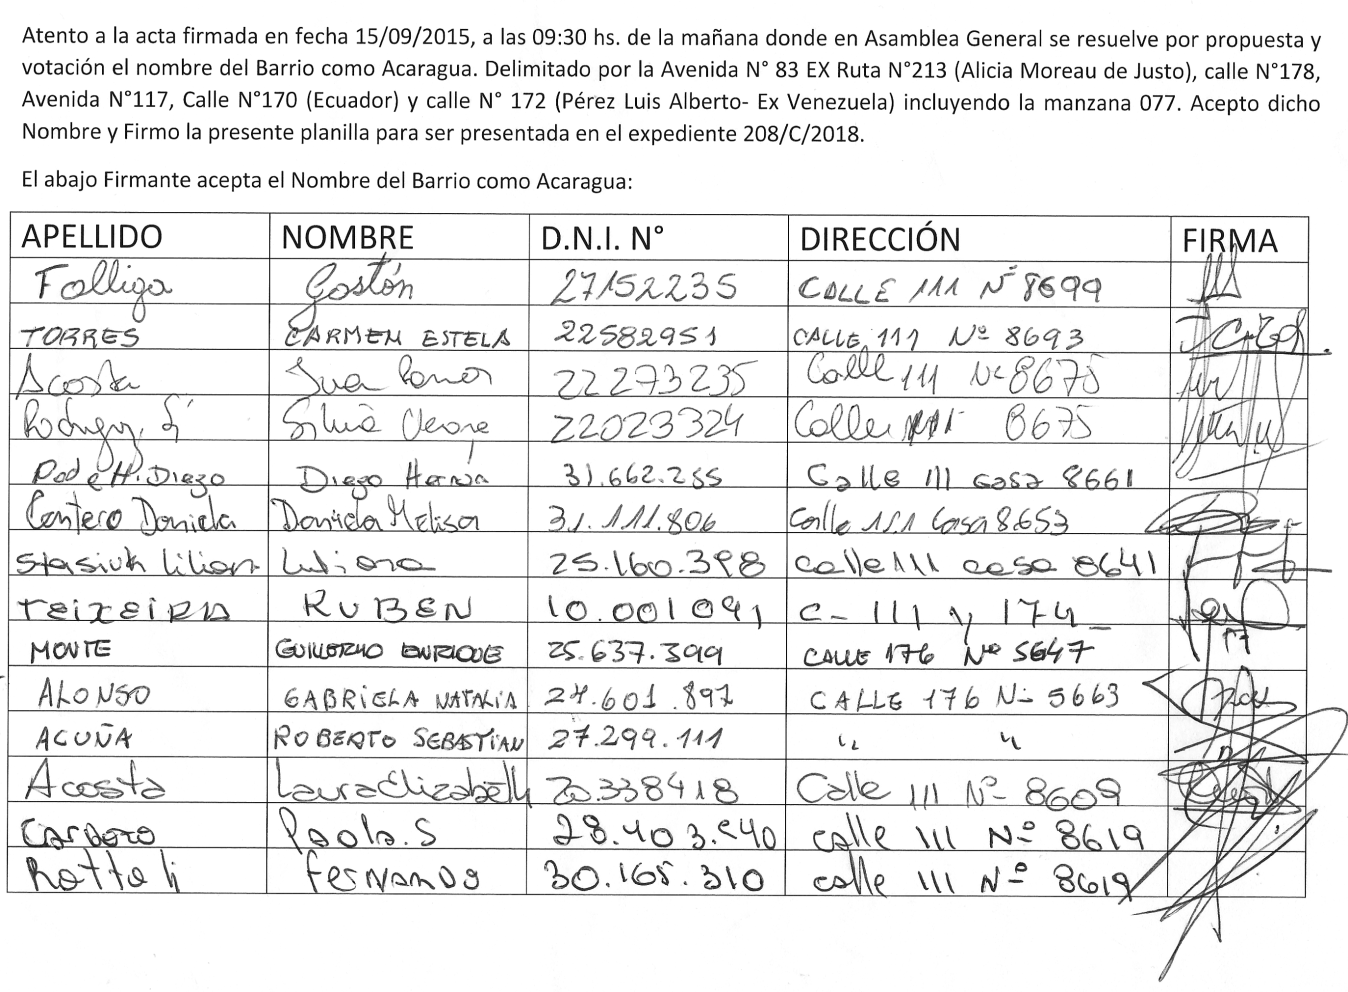 Atento a la acta firmada en fecha 15/09/2015, a las 09:30 hs. de la mañana donde en Asamblea General se resuelve por propuesta y
votación el nombre del Barrio como Acaragua. Delimitado por la Avenida N° 83 EX Ruta N°213 (Alicia Moreau de Justo), calle N°178,
Avenida N°117, Calle N°170 (Ecuador) y calle N° 172 (Pérez Luis Alberto- Ex Venezuela) incluyendo la manzana 077. Acepto dicho
Nombre y Firmo la presente planilla para ser presentada en el expediente 208/C/2018.
El abajo Firmante acepta el Nombre del Barrio como Acaragua:
APELLIDO NOMBRE D.N.I. N° DIRECCIÓN FIRMA
Folliga Gastón 27152235 CALLE 111 N° 8699
TORRES CARMEN ESTELA 22582951 CALLE 111 Nº 8693
Acosta Juan Ramon 22273235 Calle 111 Nº 8675
Silvia 22023324 Calle 111 8675
H. Diego Diego Hernán 31.662.255 Calle 111 casa 8661
Cantero Daniela Daniela Melisa 31.111.806 Calle 111 Casa 8653
Stasiuk Lilian Luciana 25.160.398 calle 111 casa 8641
TEIXEIRA RUBEN 10.001091 C- 111 y 174
MONTE GUILLERMO ENRIQUE 25.637.399 CALLE 176 Nº 5647
ALONSO GABRIELA NATALIA 24.601.897 CALLE 176 Nº 5663
ACUÑA ROBERTO SEBASTIAN 27.299.111 " "
Acosta Laura Elizabeth 20.338418 Calle 111 Nº 8609
Cardozo Paola.S 28.403.540 calle 111 Nº 8619
Rottoli Fernando 30.165.310 calle 111 Nº 8619